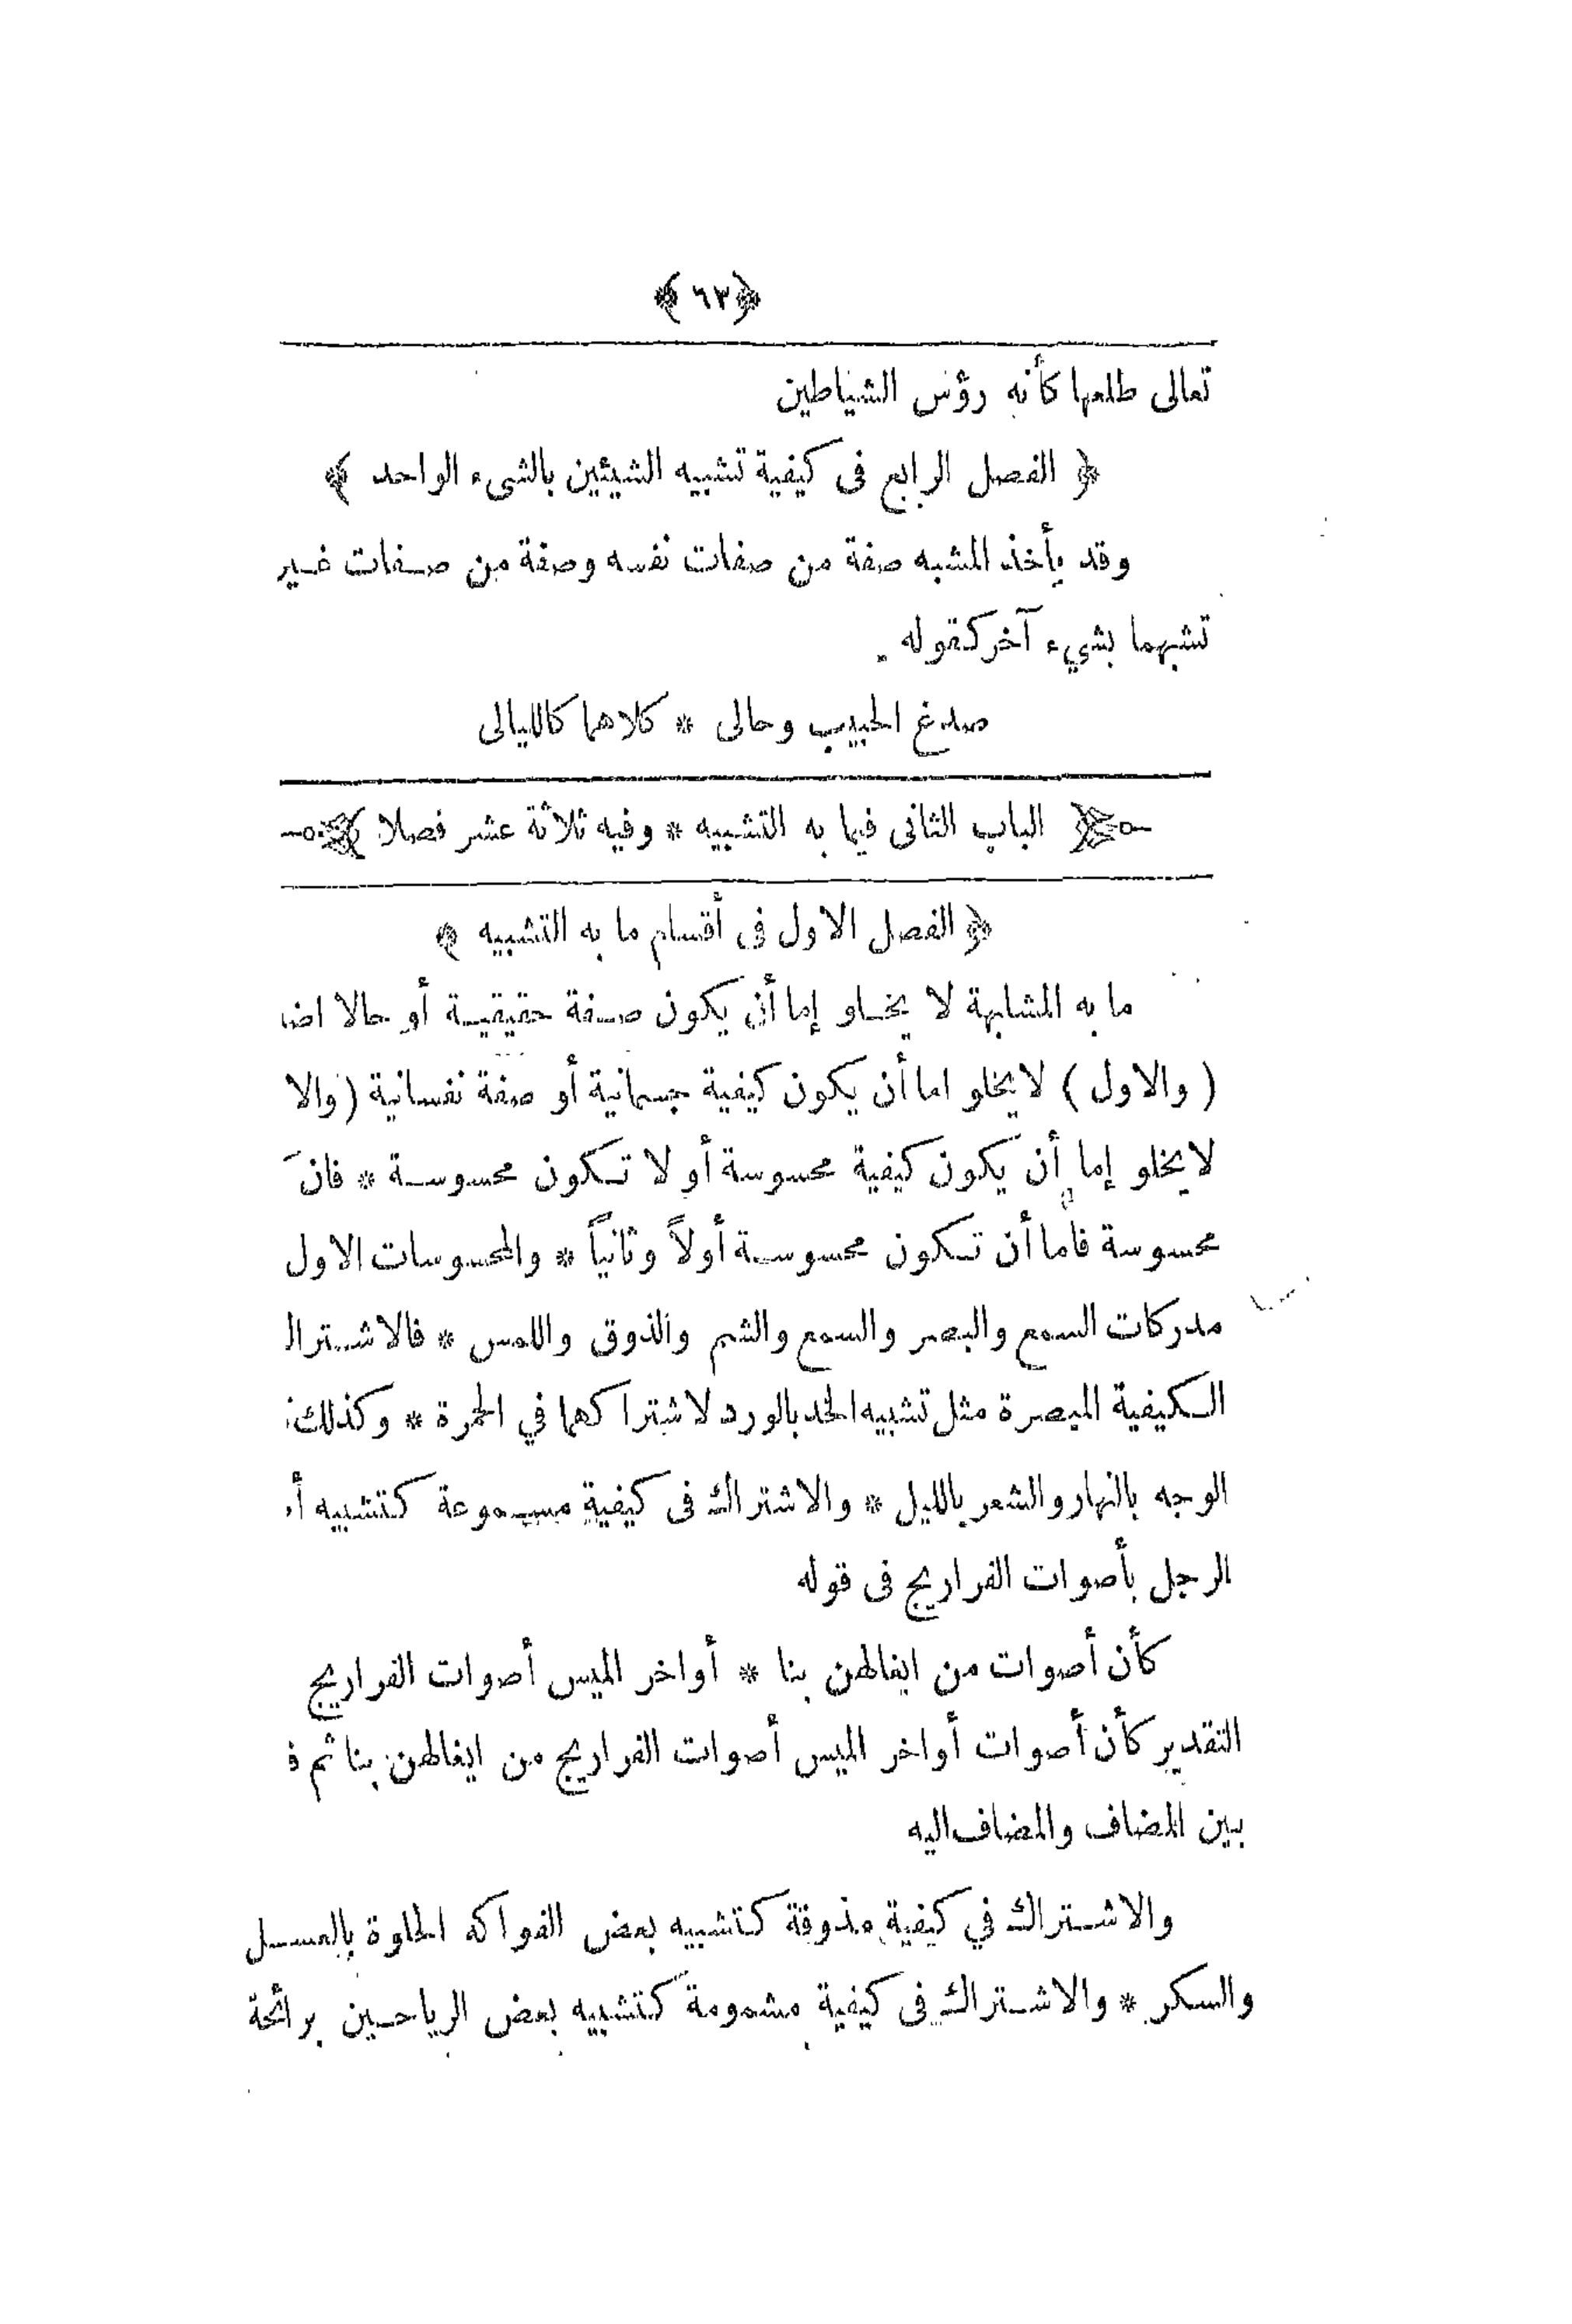 ﴿ ٦٣ ﴾
تعالى طلعها كأنه رؤس الشياطين
﴿ الفصل الرابع فى كيفية تشبيه الشيئين بالشىء الواحد ﴾
وقد يأخذ المشبه صفة من صفات نفسه وصفة من صفات غير
تشبهما بشيء آخر كقوله
صدغ الحبيب وحالى * كلاهما كالليالى
﴿ الباب الثانى فيما به التشبيه * وفيه ثلاثة عشر فصلا ﴾
﴿ الفصل الاول فى أقسام ما به التشبيه ﴾
ما به المشابهة لا يخلو إما أن يكون صفة حقيقية أو حالا
( والاول ) لا يخلو اما أن يكون كيفية جسمانية أو صفة نفسانية (والا
لا يخلو إما أن يكون كيفية محسوسة أو لا تكون محسوسة * فان
محسوسة فاما أن تكون محسوسة أولاً وثانياً * والمحسوسات الاول
مدركات السمع والبصر والسمع والشم والذوق واللمس * فالاشترا
الكيفية المبصرة مثل تشبيه الخد بالورد لاشتراكهما في الحمرة * وكذلك
الوجه بالنهار والشعر بالليل * والاشتراك فى كيفية مسموعة كتشبيه أ
الرجل بأصوات الفراريج فى قوله
كأن أصوات من ايغالهن بنا * أواخر الميس أصوات الفراريج
التقدير كأن أصوات أواخر الميس أصوات الفراريج من ايغالهن بنا ثم ف
بين المضاف والمضاف اليه
والاشتراك في كيفية مذوقة كتشبيه بعض الفواكه الحلوة بالعسل
والسكر * والاشتراك فى كيفية مشمومة كتشبيه بعض الرياحين برائحة